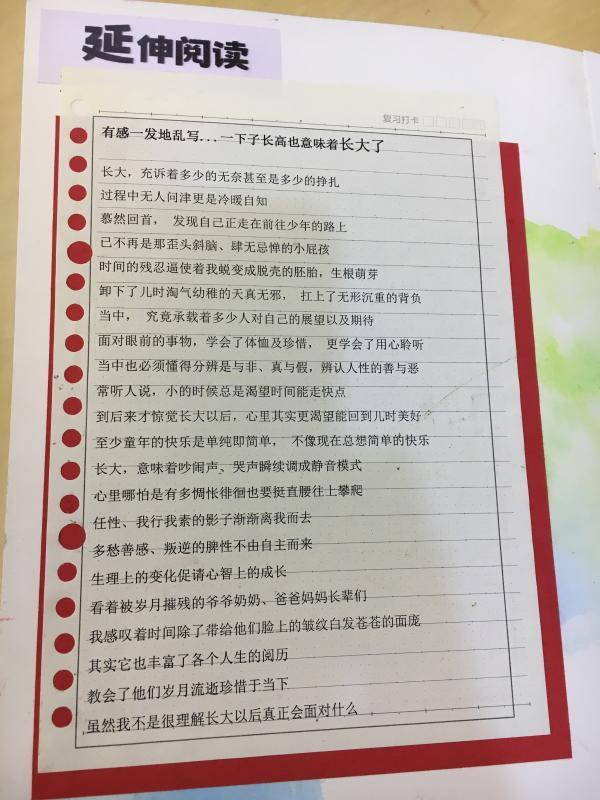 延伸阅读
复习打卡
有感一发地乱写...一下子长高也意味着长大了
长大，充诉着多少的无奈甚至是多少的挣扎
过程中无人问津更是冷暖自知
慕然回首， 发现自己正走在前往少年的路上
已不再是那歪头斜脑、肆无忌惮的小屁孩
时间的残忍逼使着我蜕变成脱壳的胚胎，生根萌芽
卸下了儿时淘气幼稚的天真无邪， 扛上了无形沉重的背负
当中， 究竟承载着多少人对自己的展望以及期待
面对眼前的事物，学会了体恤及珍惜， 更学会了用心聆听
当中也必须懂得分辨是与非、真与假，辨认人性的善与恶
常听人说，小的时候总是渴望时间能走快点
到后来才惊觉长大以后，心里其实更渴望能回到儿时美好
至少童年的快乐是单纯即简单， 不像现在总想简单的快乐
长大，意味着吵闹声、哭声瞬续调成静音模式
心里哪怕是有多惆怅徘徊也要挺直腰往上攀爬
任性、我行我素的影子渐渐离我而去
多愁善感、叛逆的脾性不由自主而来
生理上的变化促请心智上的成长
看着被岁月摧残的爷爷奶奶、爸爸妈妈长辈们
我感叹着时间除了带给他们脸上的皱纹白发苍苍的面庞
其实它也丰富了各个人生的阅历
教会了他们岁月流逝珍惜于当下
虽然我不是很理解长大以后真正会面对什么